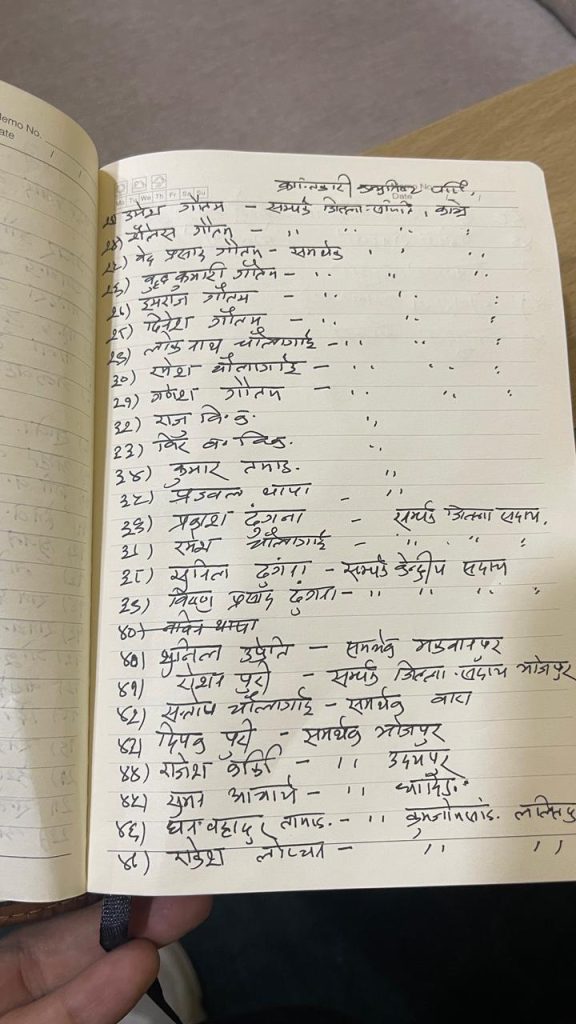 Memo No.
Date
Mo Tu We Th Fr Sa Su
Date
क्रान्तिकारी कम्युनिष्ट पार्टी,
उमेश गौतम - सम्पर्क जिल्ला काभ्रे
गौतम - " " "
वेद प्रसाद गौतम - समर्थक " "
२६) बुद्ध कुमारी गौतम - " " "
२७) हमराज गौतम - " " "
२८) दिनेश गौतम - " " "
२९) लोक नाथ चौलागाई - " " "
३०) रमेश चौलागाई - " " "
३१) गणेश गौतम - " " "
३२) राजु वि. क. "
३३) विर ब. वि.क. "
३४) कुमार तमाङ. "
३५) प्रज्वल थापा - "
३६) प्रकाश ढुंगाना - सम्पर्क जिल्ला सदस्य.
३७) रमेश चौलागाई - " " "
३८) सुनिता ढुंगाना - सम्पर्क केन्द्रीय सदस्य
३९) विष्णु प्रसाद ढुंगाना - " " "
४०) थापा
४०) सुनिल उप्रेति - समर्थक मकवानपुर
४१) रोशन पुरी - सम्पर्क जिल्ला सदस्य भोजपुर
४२) सन्तोष चौलागाई - समर्थक बारा
४३) दिपक पुरी - समर्थक भोजपुर
४४) राजेश कार्की - " उदयपुर
४५) सुमन आचार्य - " धादिङ.
४६) धन बहादुर तामाङ. - "
४७) राकेश लोप्चन - " " "